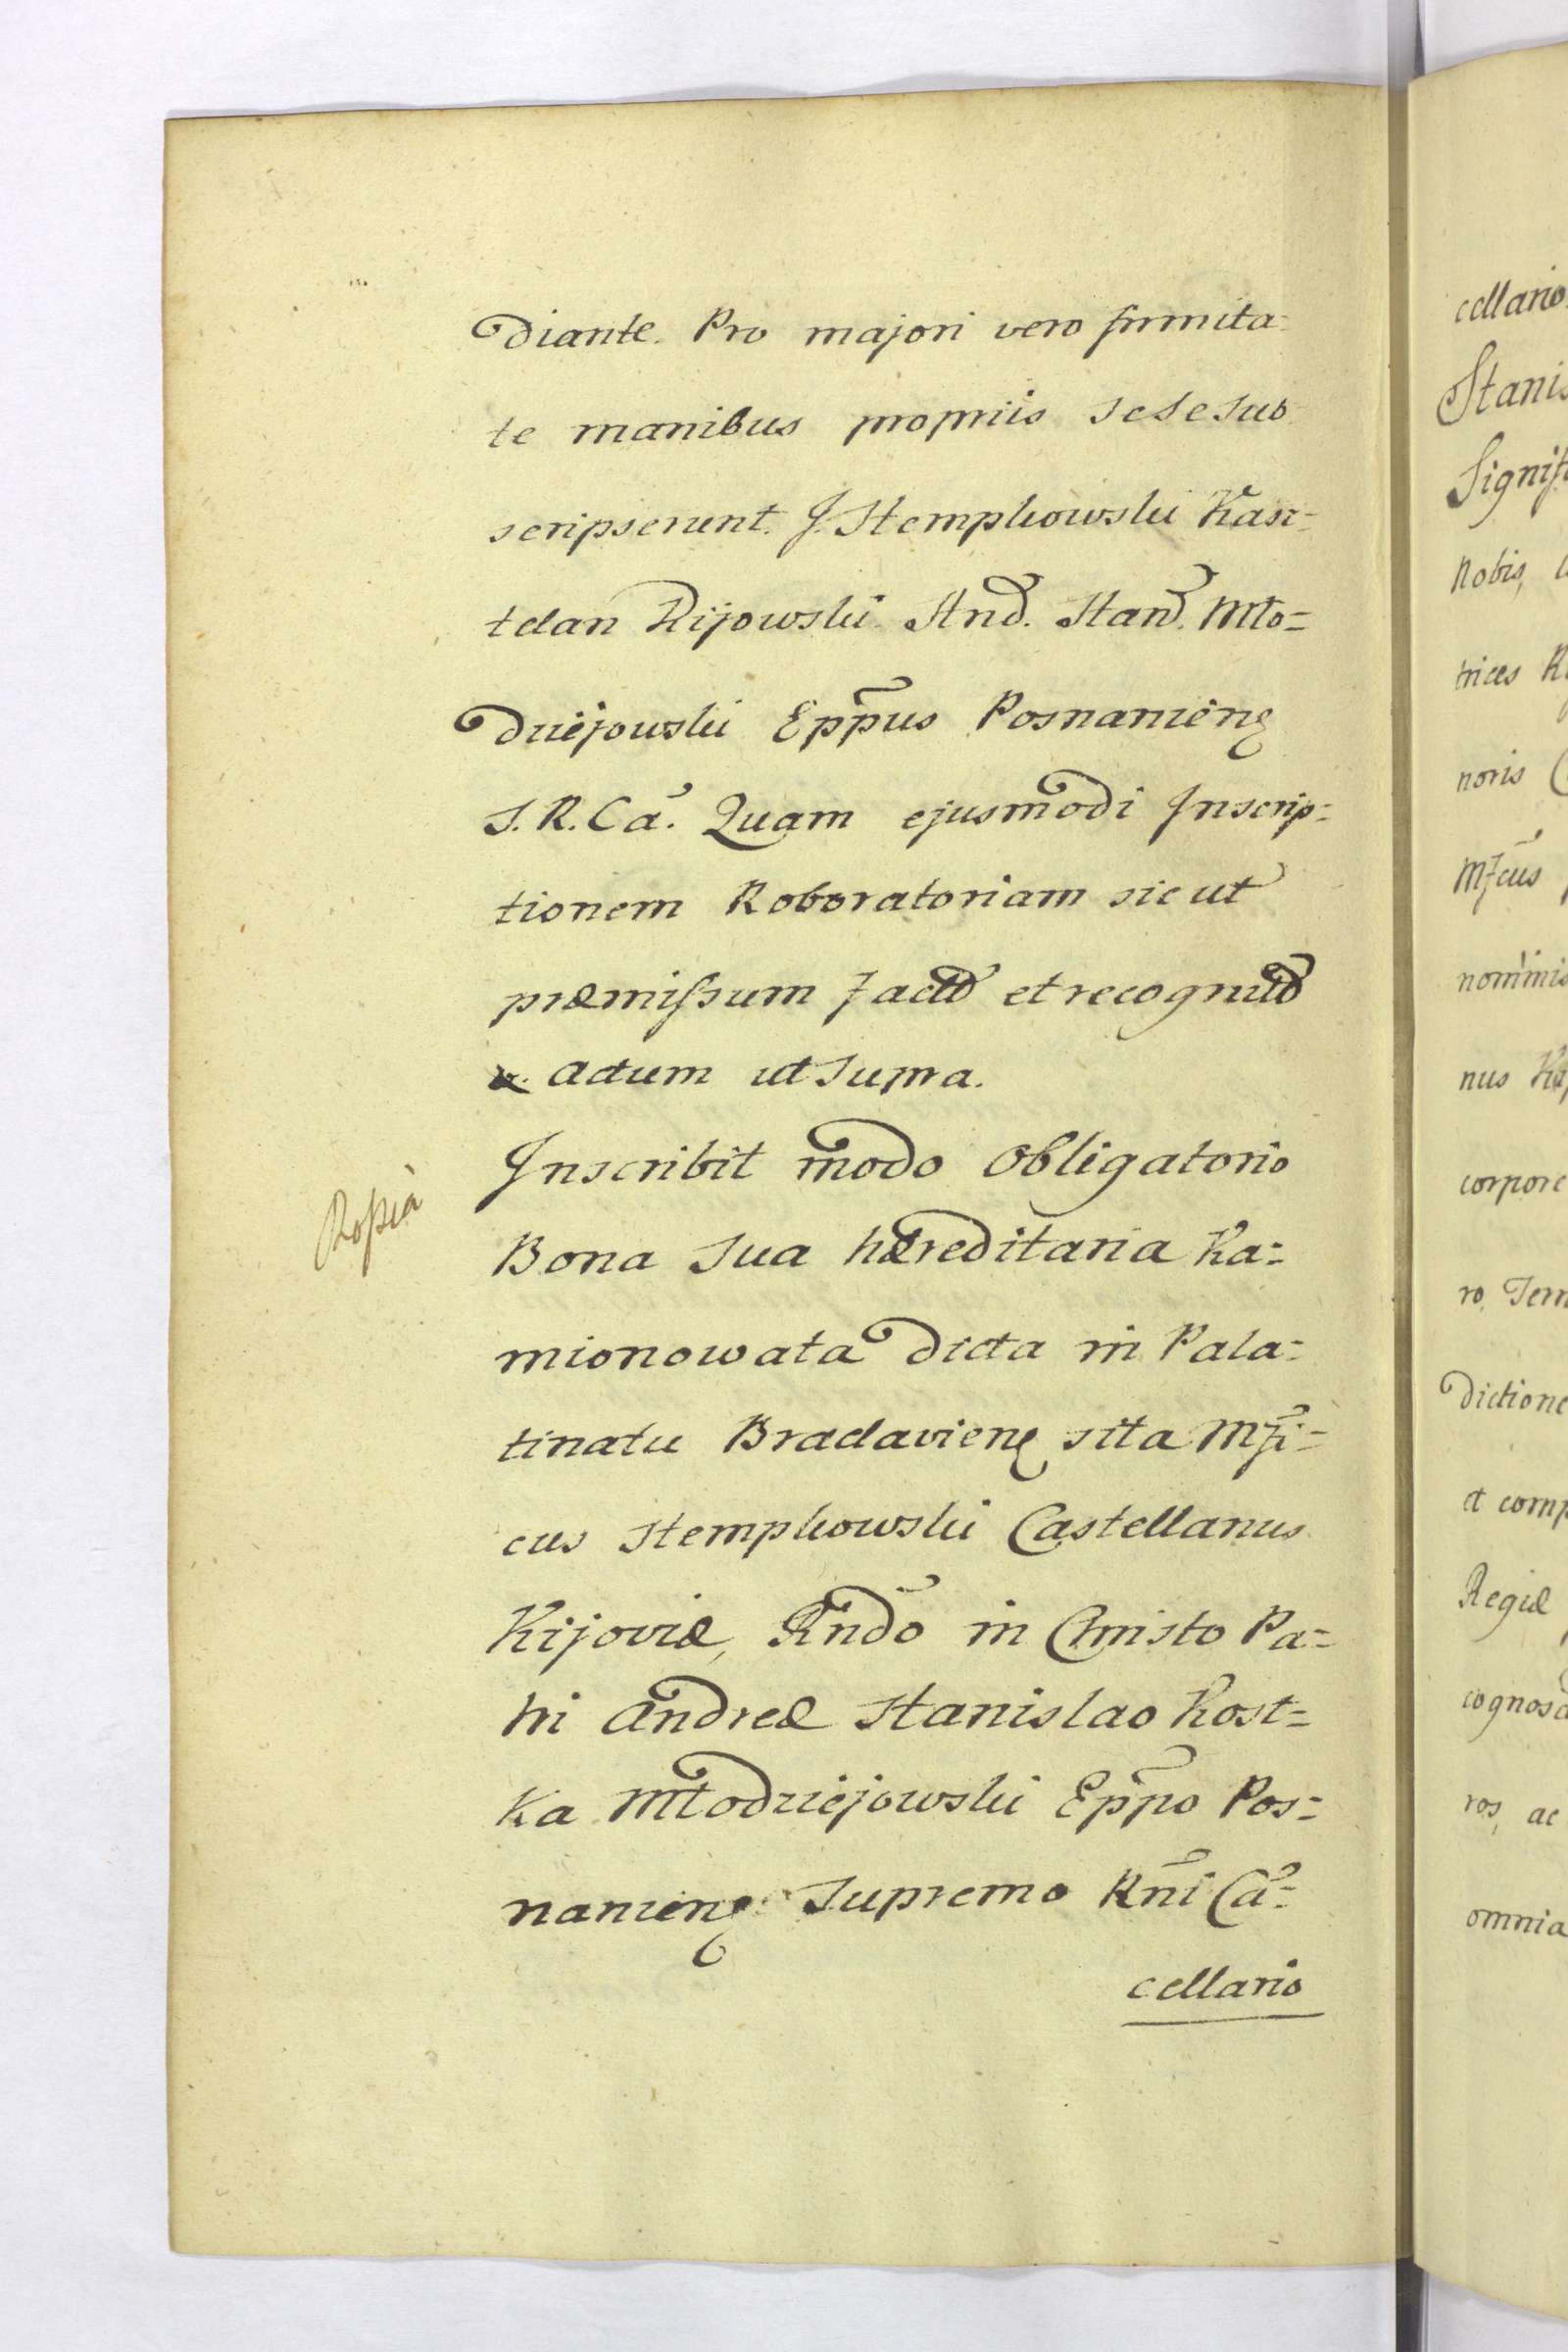 diante. Pro majori vero firmita=
te manibus propriis sese sub
scripserunt. J. Stempkowski Kasz=
telan Kijowski. And. Stan. Mło=
dziejowski Eppus Posnanien̄
S. R. Ca. Quam ejusmodi Inscrip=
tionem Roboratoriam sic ut
præmissum factā et recognitā
Actum ut supra.
Inscribit modo obligatorio
Ropia
Bona sua hæreditaria Ka=
mionowata dicta in Pala=
tinatu Braclavien̄ sita Mfi=
cus Stempkowski Castellanus
Kijoviæ, Rndo in Christo Pa=
tri Andreæ Stanislao Kost=
ka Młodziejowski Eppo Pos=
nanien̄ Supremo Rni Ca=
cellario
cellario
Stanis
Signif
Nobis,
trices R
noris
Mfcus
nominis
nus Ka
corpore
ro, Terr
dictione
et comp
Regiæ
cognosc
ros, ac
omnia